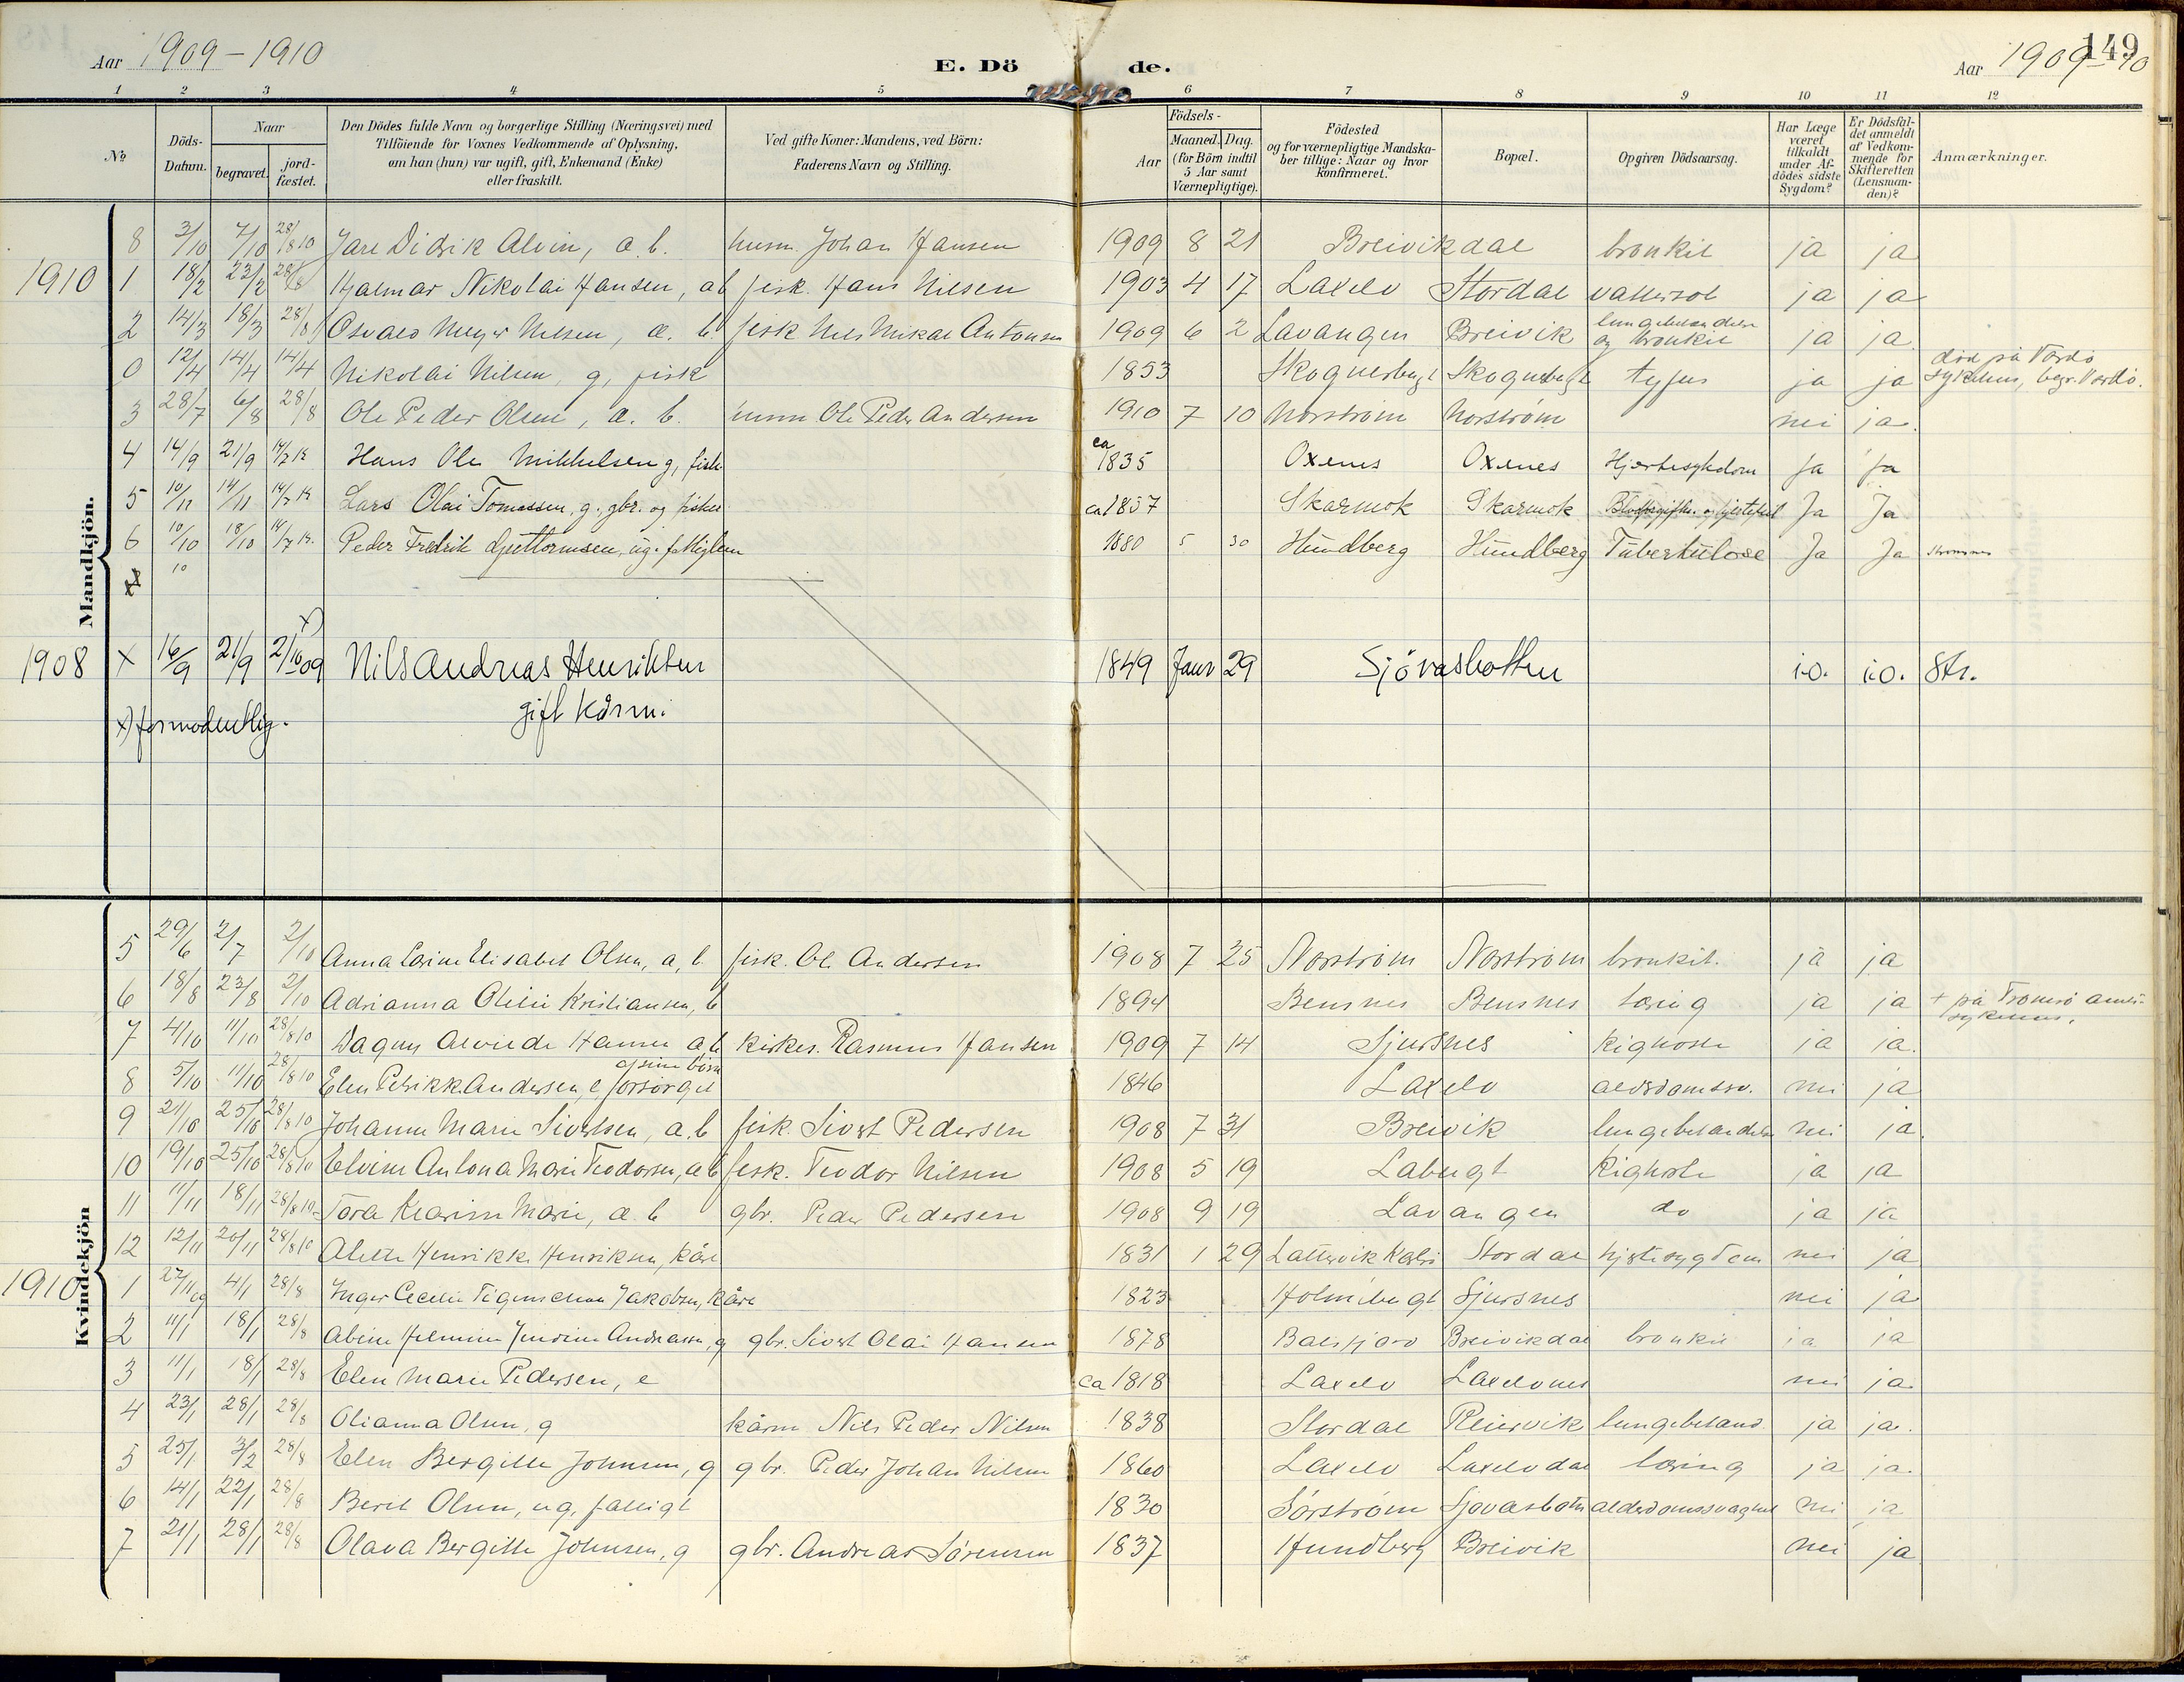 Aar 1909-1910 E. Döde. Aar 1909-10 149
1 2 3 4 5 6 7 8 9 10 11 12
No Döds-Datum. Naar begravet. jordfæstet. Den Dödes fulde Navn og borgerlige Stilling (Næringsvei) med Tilföiende for Voxnes Vedkommende af Oplysning, om han (hun) var ugift, gift, Enkemand (Enke) eller fraskilt. Ved gifte Koner: Mandens, ved Börn: Faderens Navn og Stilling. Födsels- Aar Maaned. Dag. (for Börn indtil 5 Aar samt Værnepligtige). Födested og for værnepligtige Mandskaber tillige: Naar og hvor Konfirmeret. Bopæl. Opgiven Dödsaarsag. Har Læge været tilkaldt under Afdödes sidste Sygdom? Er Dödsfaldet anmeldt af Vedkommende for Skifteretten (Lensmanden)? Anmærkninger.
Mandkjön.
8 3/10 7/10 28/8 10 Jare Didrik Alvin, a. b. husm. Johan Hansen 1909 8 21 Breivikdal bronkit ja ja
1910 1 18/2 23/2 28/8 Hjalmar Nikolai Hansen, a b fisk. Hans Nilsen 1903 4 17 Laxelv Stordal vattersot ja ja
2 14/3 18/3 28/8 Osvald Meyer Nilsen, a. b. fisk Nils Mikal Antonsen 1909 6 2 Lavangen Breivik lungebetændelse og bronkit ja ja
0 12/4 14/4 14/4 Nikolai Nilsen, g, fisk 1853 Skognesbugt Skognesbugt tyfus ja ja död på Vardö sykehus, begr. Vardö.
3 28/7 6/8 28/8 Ole Peder Olsen, a. b. husm Ole Peder Andersen 1910 7 10 Norström Norström nei ja.
4 14/9 21/9 14/7 12 Hans Ole Mikkelsen g, fisk. ca 1835 Oxenes Oxenes Hjertesykdom Ja Ja
5 10/11 14/11 14/7 12 Lars Olai Tomassen, g., gbr. og fisker ca 1857 Skarmok Skarmok Blodforgiftn. og hjertefeil Ja Ja
6 10/10 18/10 14/7 12. Peder Fredrik Guttormsen, ug. fattiglem 1880 5 30 Hundberg Hundberg Tuberkulose Ja Ja Stromnes
10
1908 x 16/9 21/9 2/10 09 x) Nils Andreas Henriksen 1849 Janr 29 Sjövasbotten i.O. i.O. Str.
gift kårm.
x) formodentlig.
Kvindekjön
5 29/6 2/7 2/10 Anna Larine Elisabet Olsen, a, b. fisk. Ole Andersen 1908 7 25 Norström Norström bronkit. ja ja
6 18/8 23/8 2/10 Adrianna Otilie Kristiansen, b 1894 Bensnes Bensnes tæring ja ja + på Tromsö amts-sykehus.
7 4/10 11/10 28/8 10 Dagny Alvilde Hansen a b kirkes. Rasmus Hansen 1909 7 14 Sjursnes kighoste ja ja.
8 5/10 11/10 28/8 10 Elen Petrikke Andersen, e forsörget af sine börn 1846 Laxelv alderdomssv. nei ja
9 21/10 25/10 28/8 10 Johanne Marie Sivertsen, a. b fisk. Sivert Pedersen 1908 7 31 Breivik lungebetændelse nei ja.
10 19/10 25/10 28/8 10 Elvine Antona Marie Teodorsen, a b fisk. Teodor Nilsen 1908 5 19 Labugt Kighoste ja ja
11 11/11 18/11 28/8 10 Tora Karine Marie, a. b gbr. Peder Pedersen 1908 9 19 Lavangen do ja ja
12 12/11 20/11 28/8 10 Aleth Henrikke Henriksen, kåre 1831 1 29 Lattervik Karlsö Stordal hjertesygdom nei ja
1910 1 27/11 09 4/1 28/8 Inger Cecilie Jakobsen, kåre 1823 Holmebugt Sjursnes nei ja
2 11/1 18/1 28/8 Abine Helmine Andreassen, g gbr. Sivert Olai Hansen 1878 Balsfjord Breivikdal bronkit ja ja
3 11/1 18/1 28/8 Elen Marie Pedersen, e ca 1818 Laxelv Laxelvnes nei ja.
4 23/1 28/1 28/8 Olianna Olsen, g kårm Nils Peder Nilsen 1838 Stordal Reiervik lungebetænd. ja ja.
5 25/1 3/2 28/8 Elen Bergitte Johnsen, g gbr. Peder Johan Nilsen 1860 Laxelv Laxelvdal tæring ja ja.
6 14/1 22/1 28/8 Berit Olsen, ug, fattigl 1830 Sörström Sjövasbotn alderdomssvaghet nei ja
7 21/1 28/1 28/8 Olava Bergitte Johnsen, g gbr. Andreas Sörensen 1837 Hundberg Breivik nei ja